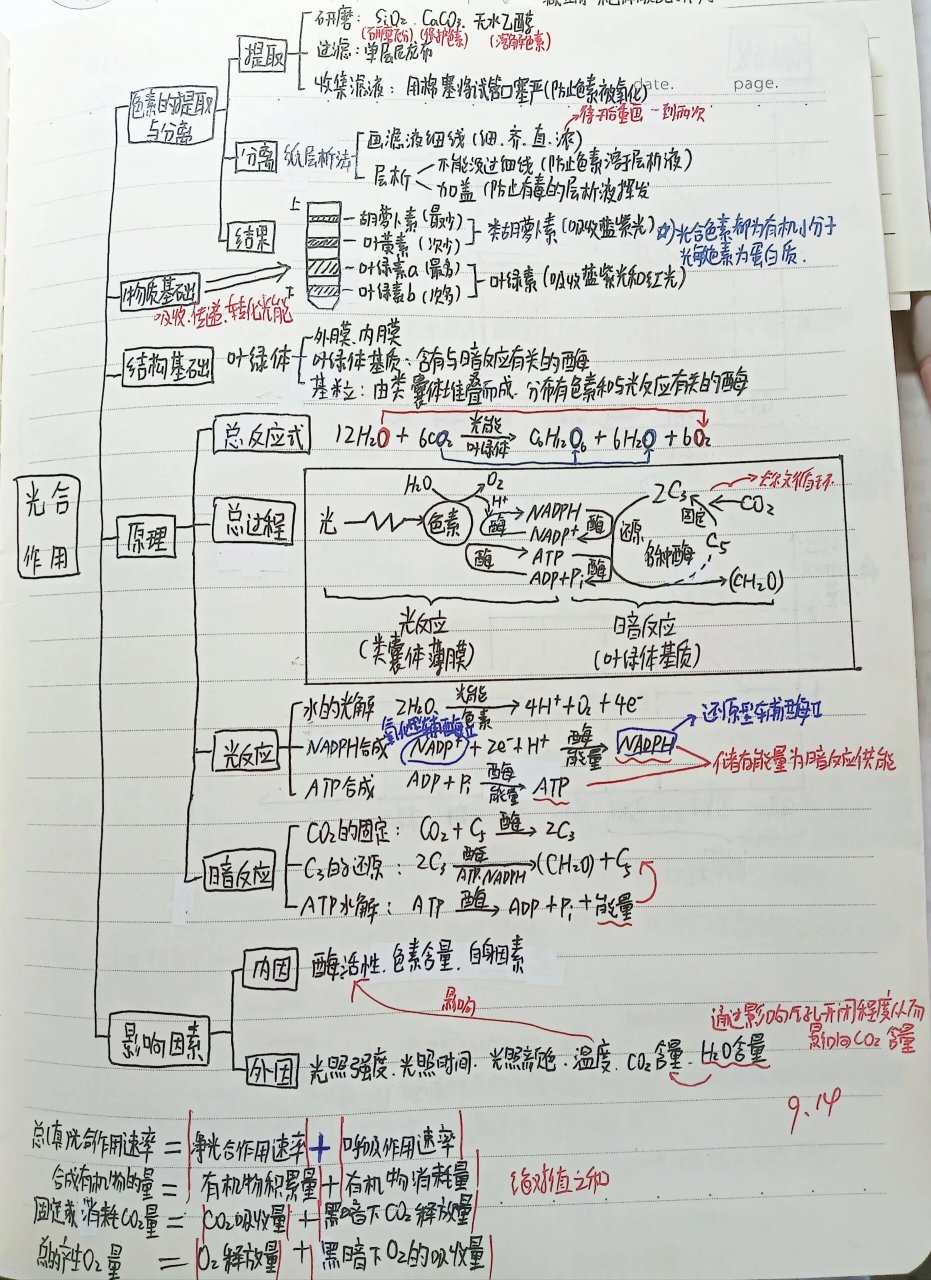 date. page.
光合作用
色素的提取与分离
提取
研磨：SiO₂、CaCO₃、无水乙醇
(研磨充分) (保护色素) (溶解色素)
过滤：单层尼龙布
收集滤液：用棉塞将试管口塞严(防止色素被氧化)
分离 纸层析法
画滤液细线(细、齐、直、浓)
待干后重画一到两次
层析
不能没过细线(防止色素溶于层析液)
加盖(防止有毒的层析液挥发
结果
上
胡萝卜素(最少)
叶黄素(次少)
类胡萝卜素(吸收蓝紫光)
叶绿素a(最多)
叶绿素b(次多)
叶绿素(吸收蓝紫光和红光)
下
光合色素都为有机小分子
光敏色素为蛋白质.
物质基础
吸收、传递、转化光能
结构基础 叶绿体
外膜、内膜
叶绿体基质：含有与暗反应有关的酶
基粒：由类囊体堆叠而成. 分布有色素和与光反应有关的酶
原理
总反应式
12H₂O + 6CO₂ 光能 叶绿体 → C₆H₁₂O₆ + 6H₂O + 6O₂
总过程
光 色素 H₂O O₂ H⁺
酶 NADPH NADP⁺ 酶
酶 ATP ADP+Pi 酶
还原 多种酶 固定
2C₃ CO₂ C₅ (CH₂O)
卡尔文循环
光反应
(类囊体薄膜)
暗反应
(叶绿体基质)
光反应
水的光解 2H₂O 光能 色素 → 4H⁺+O₂+4e⁻
氧化型辅酶Ⅱ
NADPH合成 NADP⁺ + 2e⁻+H⁺ 酶 能量 → NADPH
还原型辅酶Ⅱ
ATP合成 ADP+Pi 酶 能量 → ATP
储有能量为暗反应供能
暗反应
CO₂的固定：CO₂+C₅ 酶 → 2C₃
C₃的还原：2C₃ 酶 ATP、NADPH → (CH₂O)+C₅
ATP水解：ATP 酶 → ADP+Pi+能量
影响因素
内因 酶活性、色素含量、自身因素
影响
外因 光照强度、光照时间、光照面积、温度、CO₂含量、H₂O含量
通过影响气孔开闭程度从而
影响CO₂含量
9.14
总(真)光合作用速率 = |净光合作用速率| + |呼吸作用速率|
合成有机物的量 = |有机物积累量| + |有机物消耗量|
绝对值之和
固定或消耗CO₂量 = |CO₂吸收量| + |黑暗下CO₂释放量|
总的产生O₂量 = |O₂释放量| + |黑暗下O₂的吸收量|